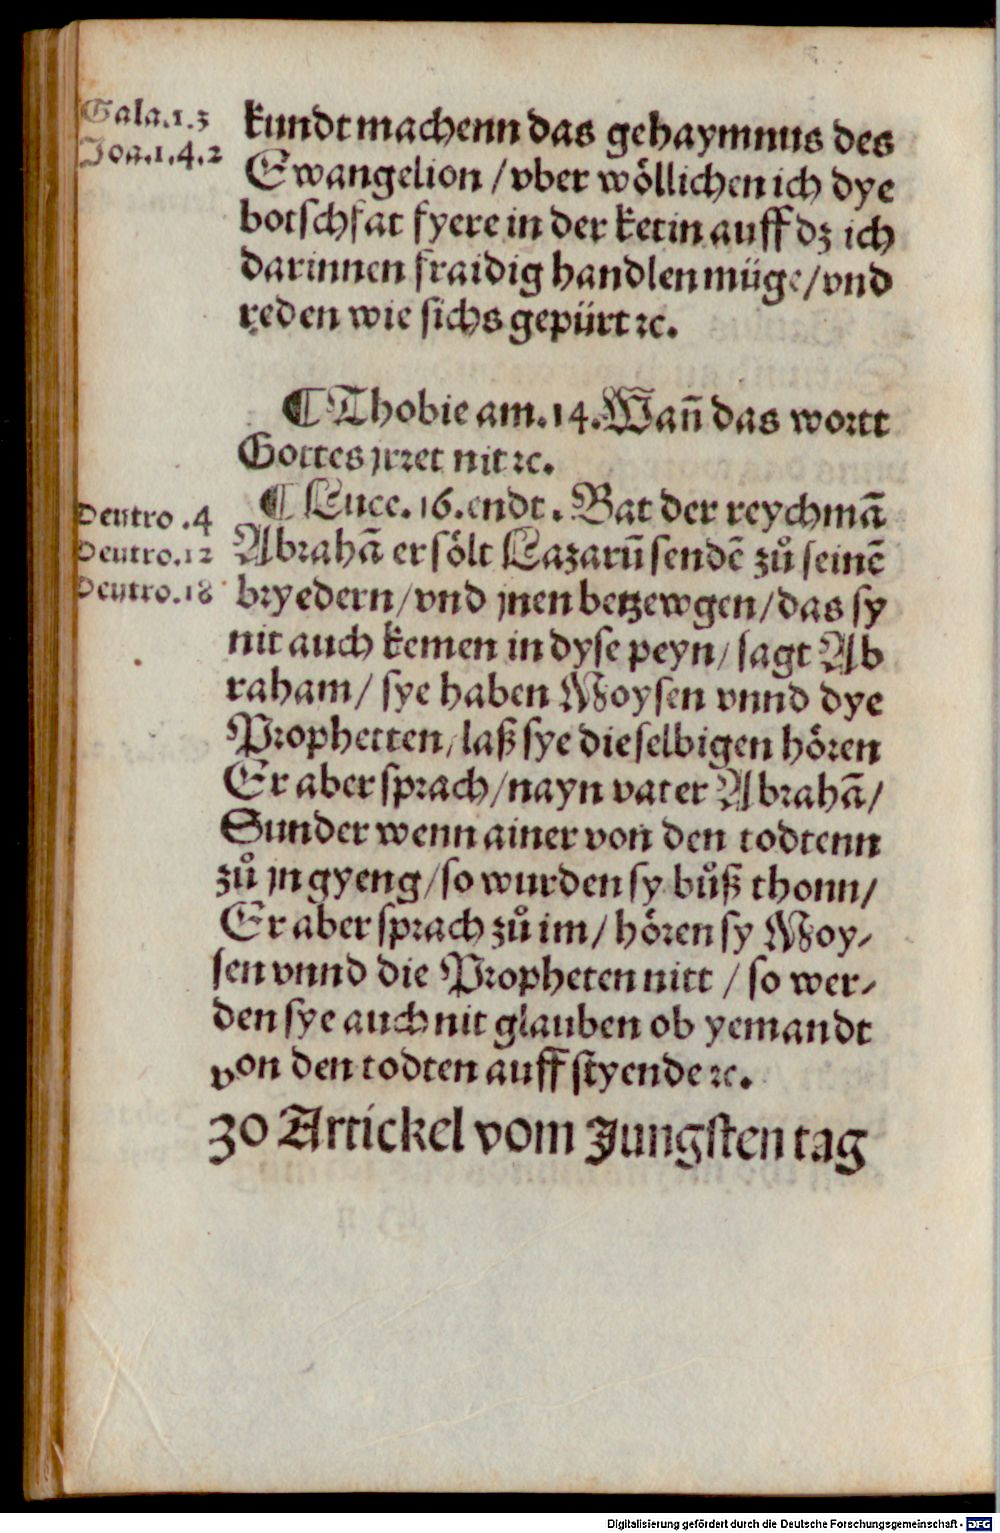 Gala.1.3
Joa.1.4.2
kundt machenn das gehaymnus des
Ewangelion / vber wöllichen ich dye
botschfat fyere in der ketin auff dz ich
darinnen fraidig handlen müge / vnd
reden wie sichs gepürt ꝛc.
¶ Thobie am .14. Wañ das wortt
Gottes jrret nit ꝛc.
Deutro .4
Deutro.12
Deutro.18
¶ Luce. 16. endt. Bat der reychmā
Abrahā er sölt Lazarū sendē zů seinē
bryedern / vnd jnen betzewgen / das sy
nit auch kemen in dyse peyn / sagt Ab
raham / sye haben Moysen vnnd dye
Prophetten / laß sye die selbigen hören
Er aber sprach / nayn vater Abrahā /
Sunder wenn ainer von den todtenn
zů jn gyeng / so wurden sy bůß thonn /
Er aber sprach zů im / hören sy Moy⸗
sen vnnd die Propheten nitt / so wer⸗
den sye auch nit glauben ob yemandt
von den todten auff styende ꝛc.
30 Artickel vom Jungsten tag
Digitalisierung gefördert durch die Deutsche Forschungsgemeinschaft - DFG